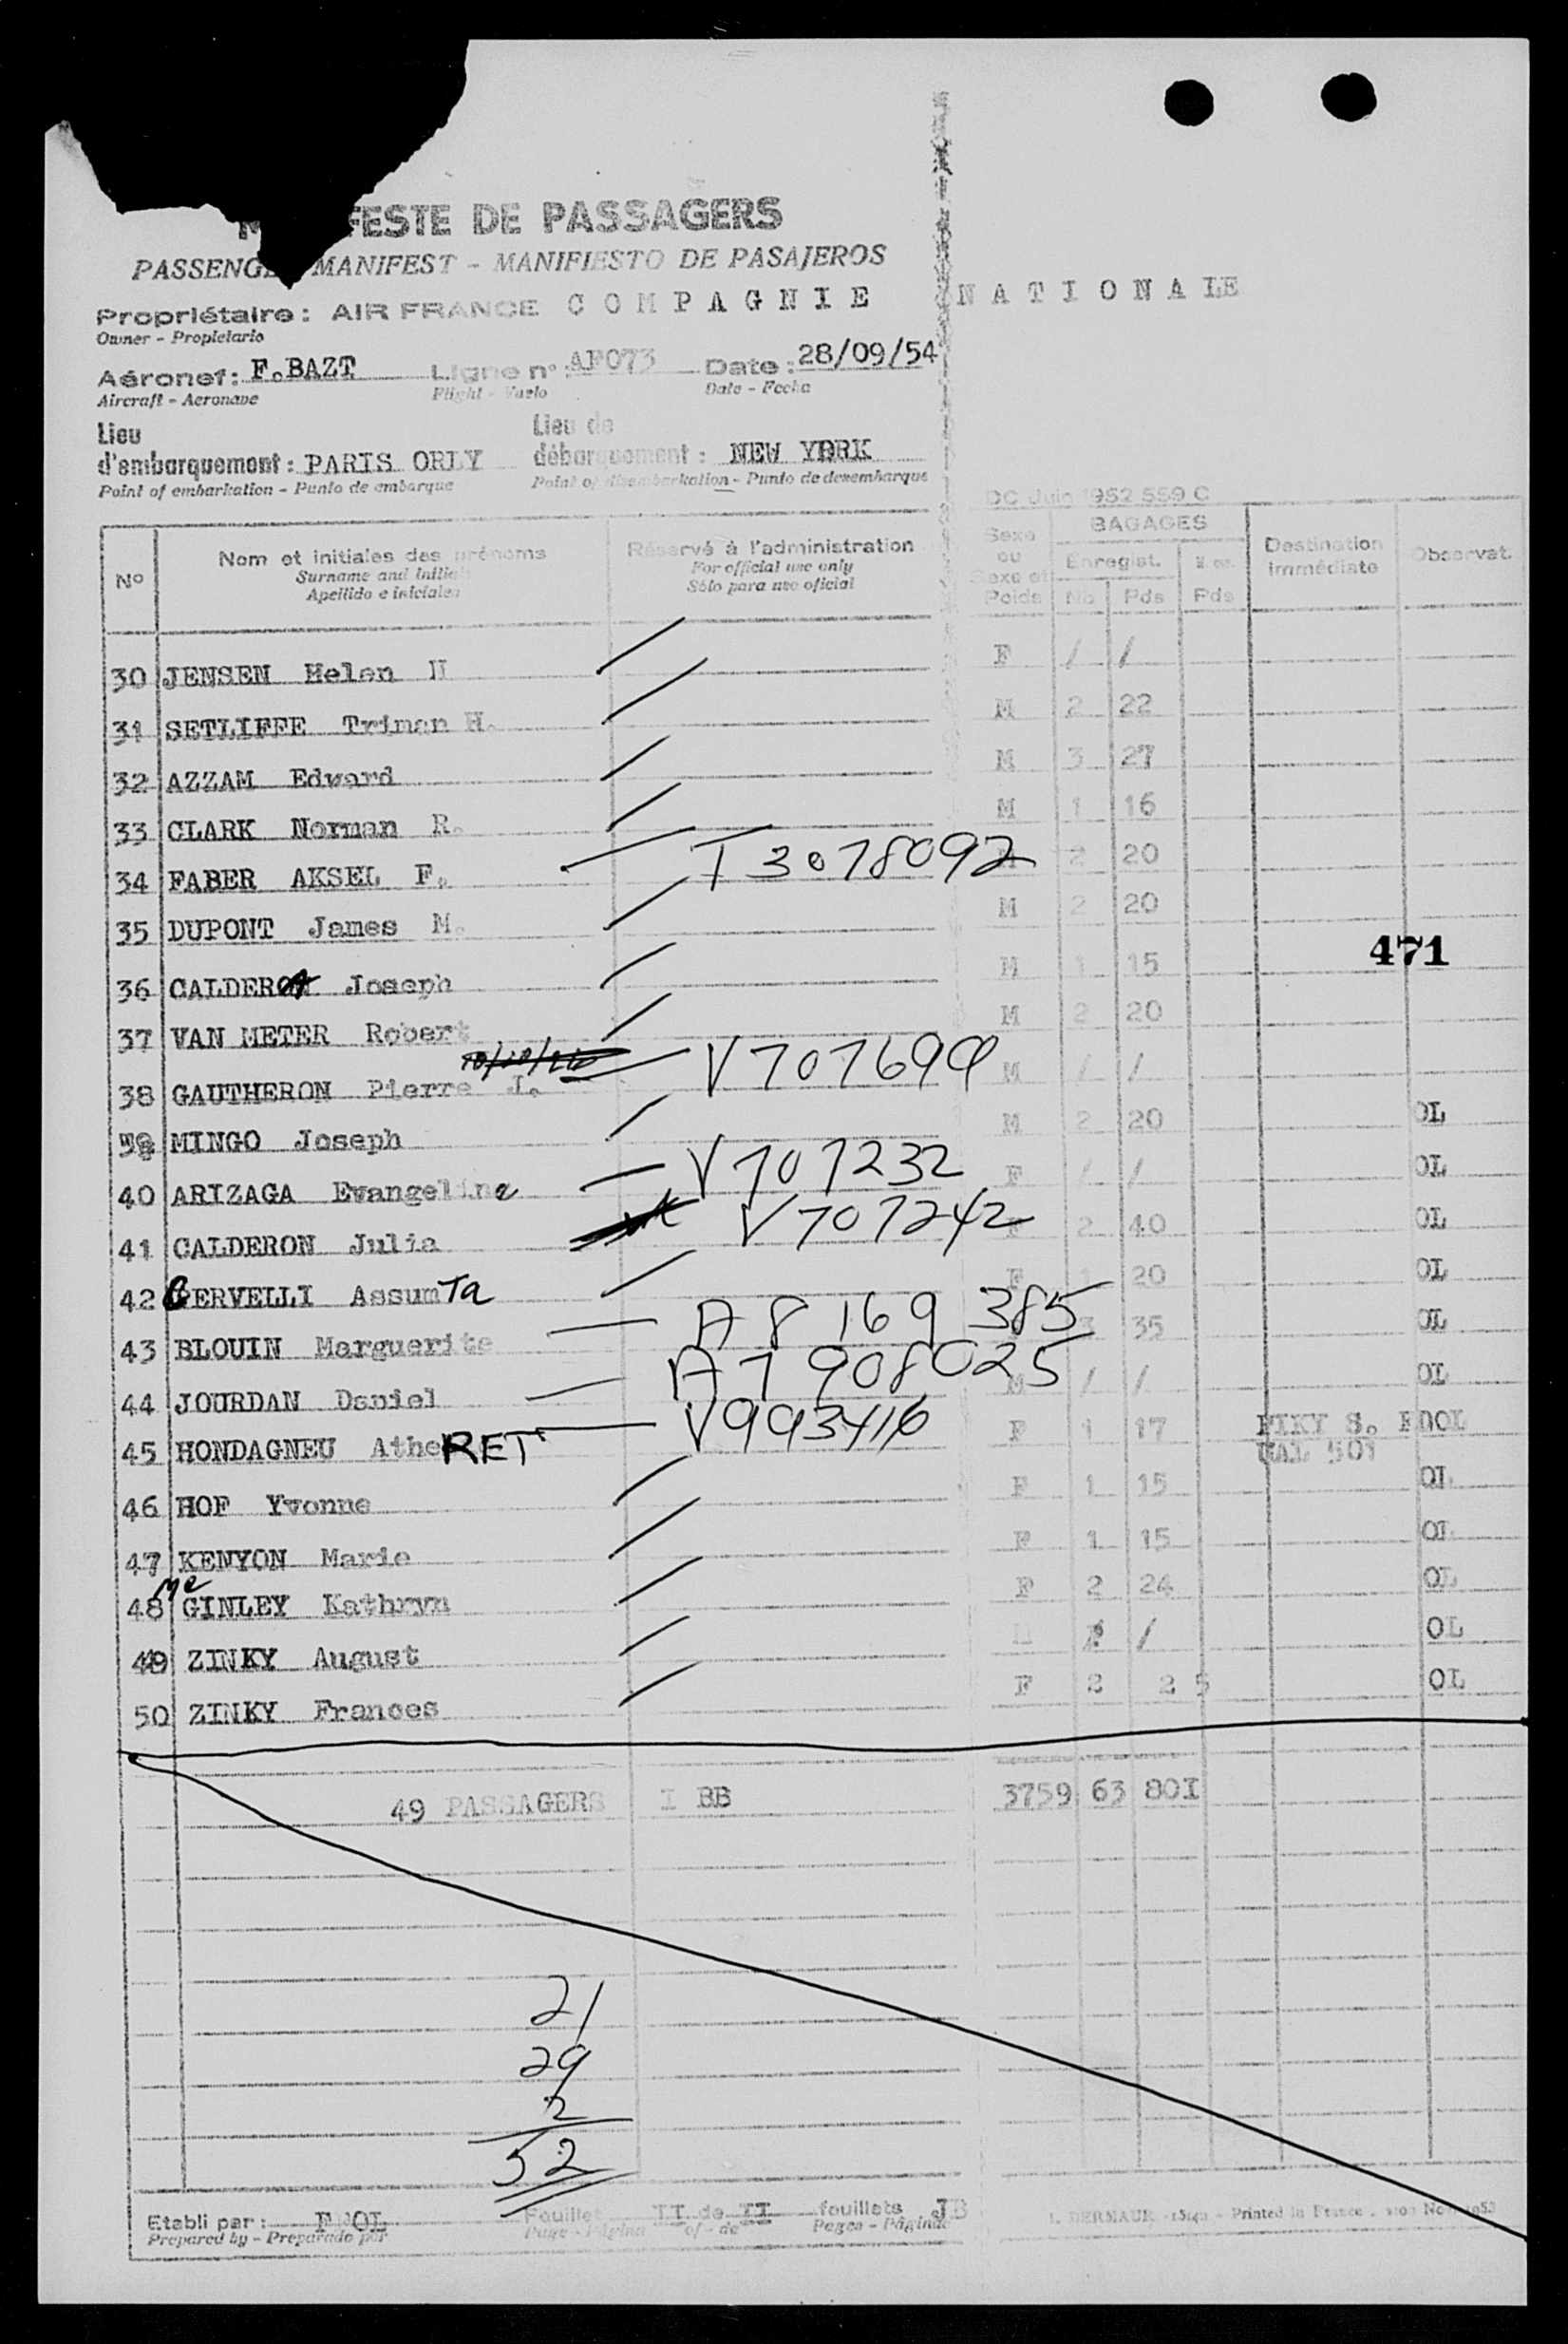 FESTE DE PASSAGERS
MANIFEST - MANIFIESTO DE PASAJEROS
Propriétaire: AIR FRANCE COMPAGNIE NATIONALE
Owner - Propietario
Aéronef: F.BAZT Ligne n° AF073 Date: 28/09/54
Aircraft - Aeronave Flight - Vuelo Date - Fecha
Lieu d'embarquement: PARIS ORLY Lieu de débarquement: NEW YORK
Point of embarkation - Punto de embarque Point of disembarkation - Punto de desembarque
DC Juin 1952 559 C
N° Nom et initiales des prénoms Réservé à l'administration Sexe ou Sexe et Poids BAGAGES Destination immédiate Observat.
Surname and initials For official use only Enregist.
Apellido e iniciales Sólo para uso oficial Nb Pds Pds
30 JENSEN Helen F / /
31 SETLIFFE Triman H. M 2 22
32 AZZAM Edward M 3 27
33 CLARK Norman R. M 1 16
34 FABER AKSEL F. T 3078092 2 20
35 DUPONT James M. M 2 20
471
36 CALDERO Joseph M 1 15
37 VAN METER Robert M 2 20
38 GAUTHERON Pierre J. V707699 M / /
39 MINGO Joseph M 2 20 OL
40 ARIZAGA Evangeline V707232 F / / OL
41 CALDERON Julia V707242 F 2 40 OL
42 CERVELLI AssumTa F 1 20 OL
43 BLOUIN Marguerite A8 169 385 3 35 OL
44 JOURDAN Daniel A7 908025 M / / OL
45 HONDAGNEU AtheRET V993416 F 1 17
UAL 501
46 HOF Yvonne F 1 15 OL
47 KENYON Marie F 1 15 OL
48 Mc GINLEY Kathryn F 2 24 OL
49 ZINKY August / OL
50 ZINKY Frances F 2 25 OL
49 PASSAGERS I BB 3759 63 80I
21
29
2
52
Etabli par: Feuillet II de II feuillets JB
Prepared by - Preparado por Page - Página of - de Pages - Páginas
Printed in France